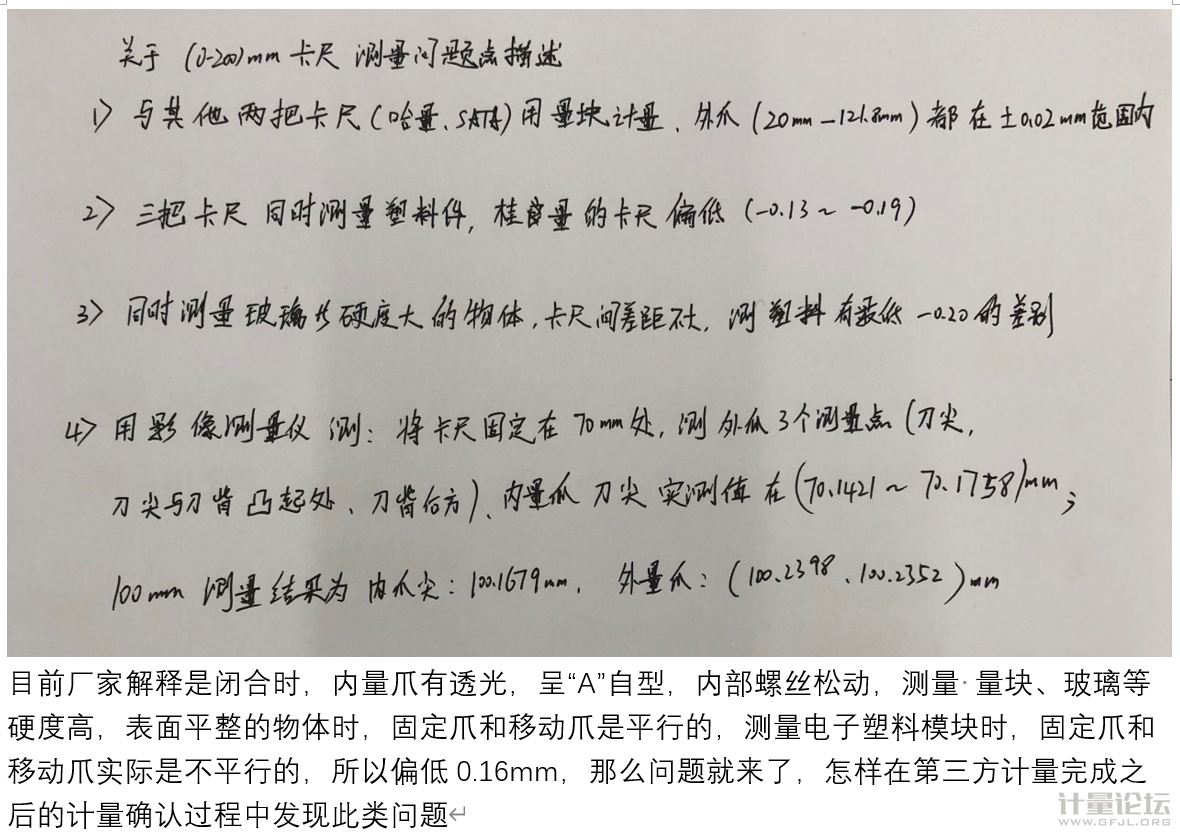 关于 (0-200)mm 卡尺 测量问题点描述
1) 与其他两把卡尺(哈量、SATA)用量块计量、外爪(20mm-121.8mm)都在±0.02mm范围内
2) 三把卡尺同时测量塑料件，桂林量的卡尺偏低(-0.13~-0.19)
3) 同时测量玻璃等硬度大的物体，卡尺间差距不大，测塑料有最低-0.20的差别
4) 用影像测量仪测：将卡尺固定在70mm处，测外爪3个测量点(刀尖，
刀尖与刀背凸起处、刀背后方)、内量爪刀尖实测值在(70.1421~70.1758)mm；
100mm测量结果为内爪尖：100.1679mm，外量爪：(100.2398、100.2352)mm
目前厂家解释是闭合时，内量爪有透光，呈“A”自型，内部螺丝松动，测量·量块、玻璃等
硬度高，表面平整的物体时，固定爪和移动爪是平行的，测量电子塑料模块时，固定爪和
移动爪实际是不平行的，所以偏低 0.16mm，那么问题就来了，怎样在第三方计量完成之
后的计量确认过程中发现此类问题
计量论坛
WWW.GFJL.ORG